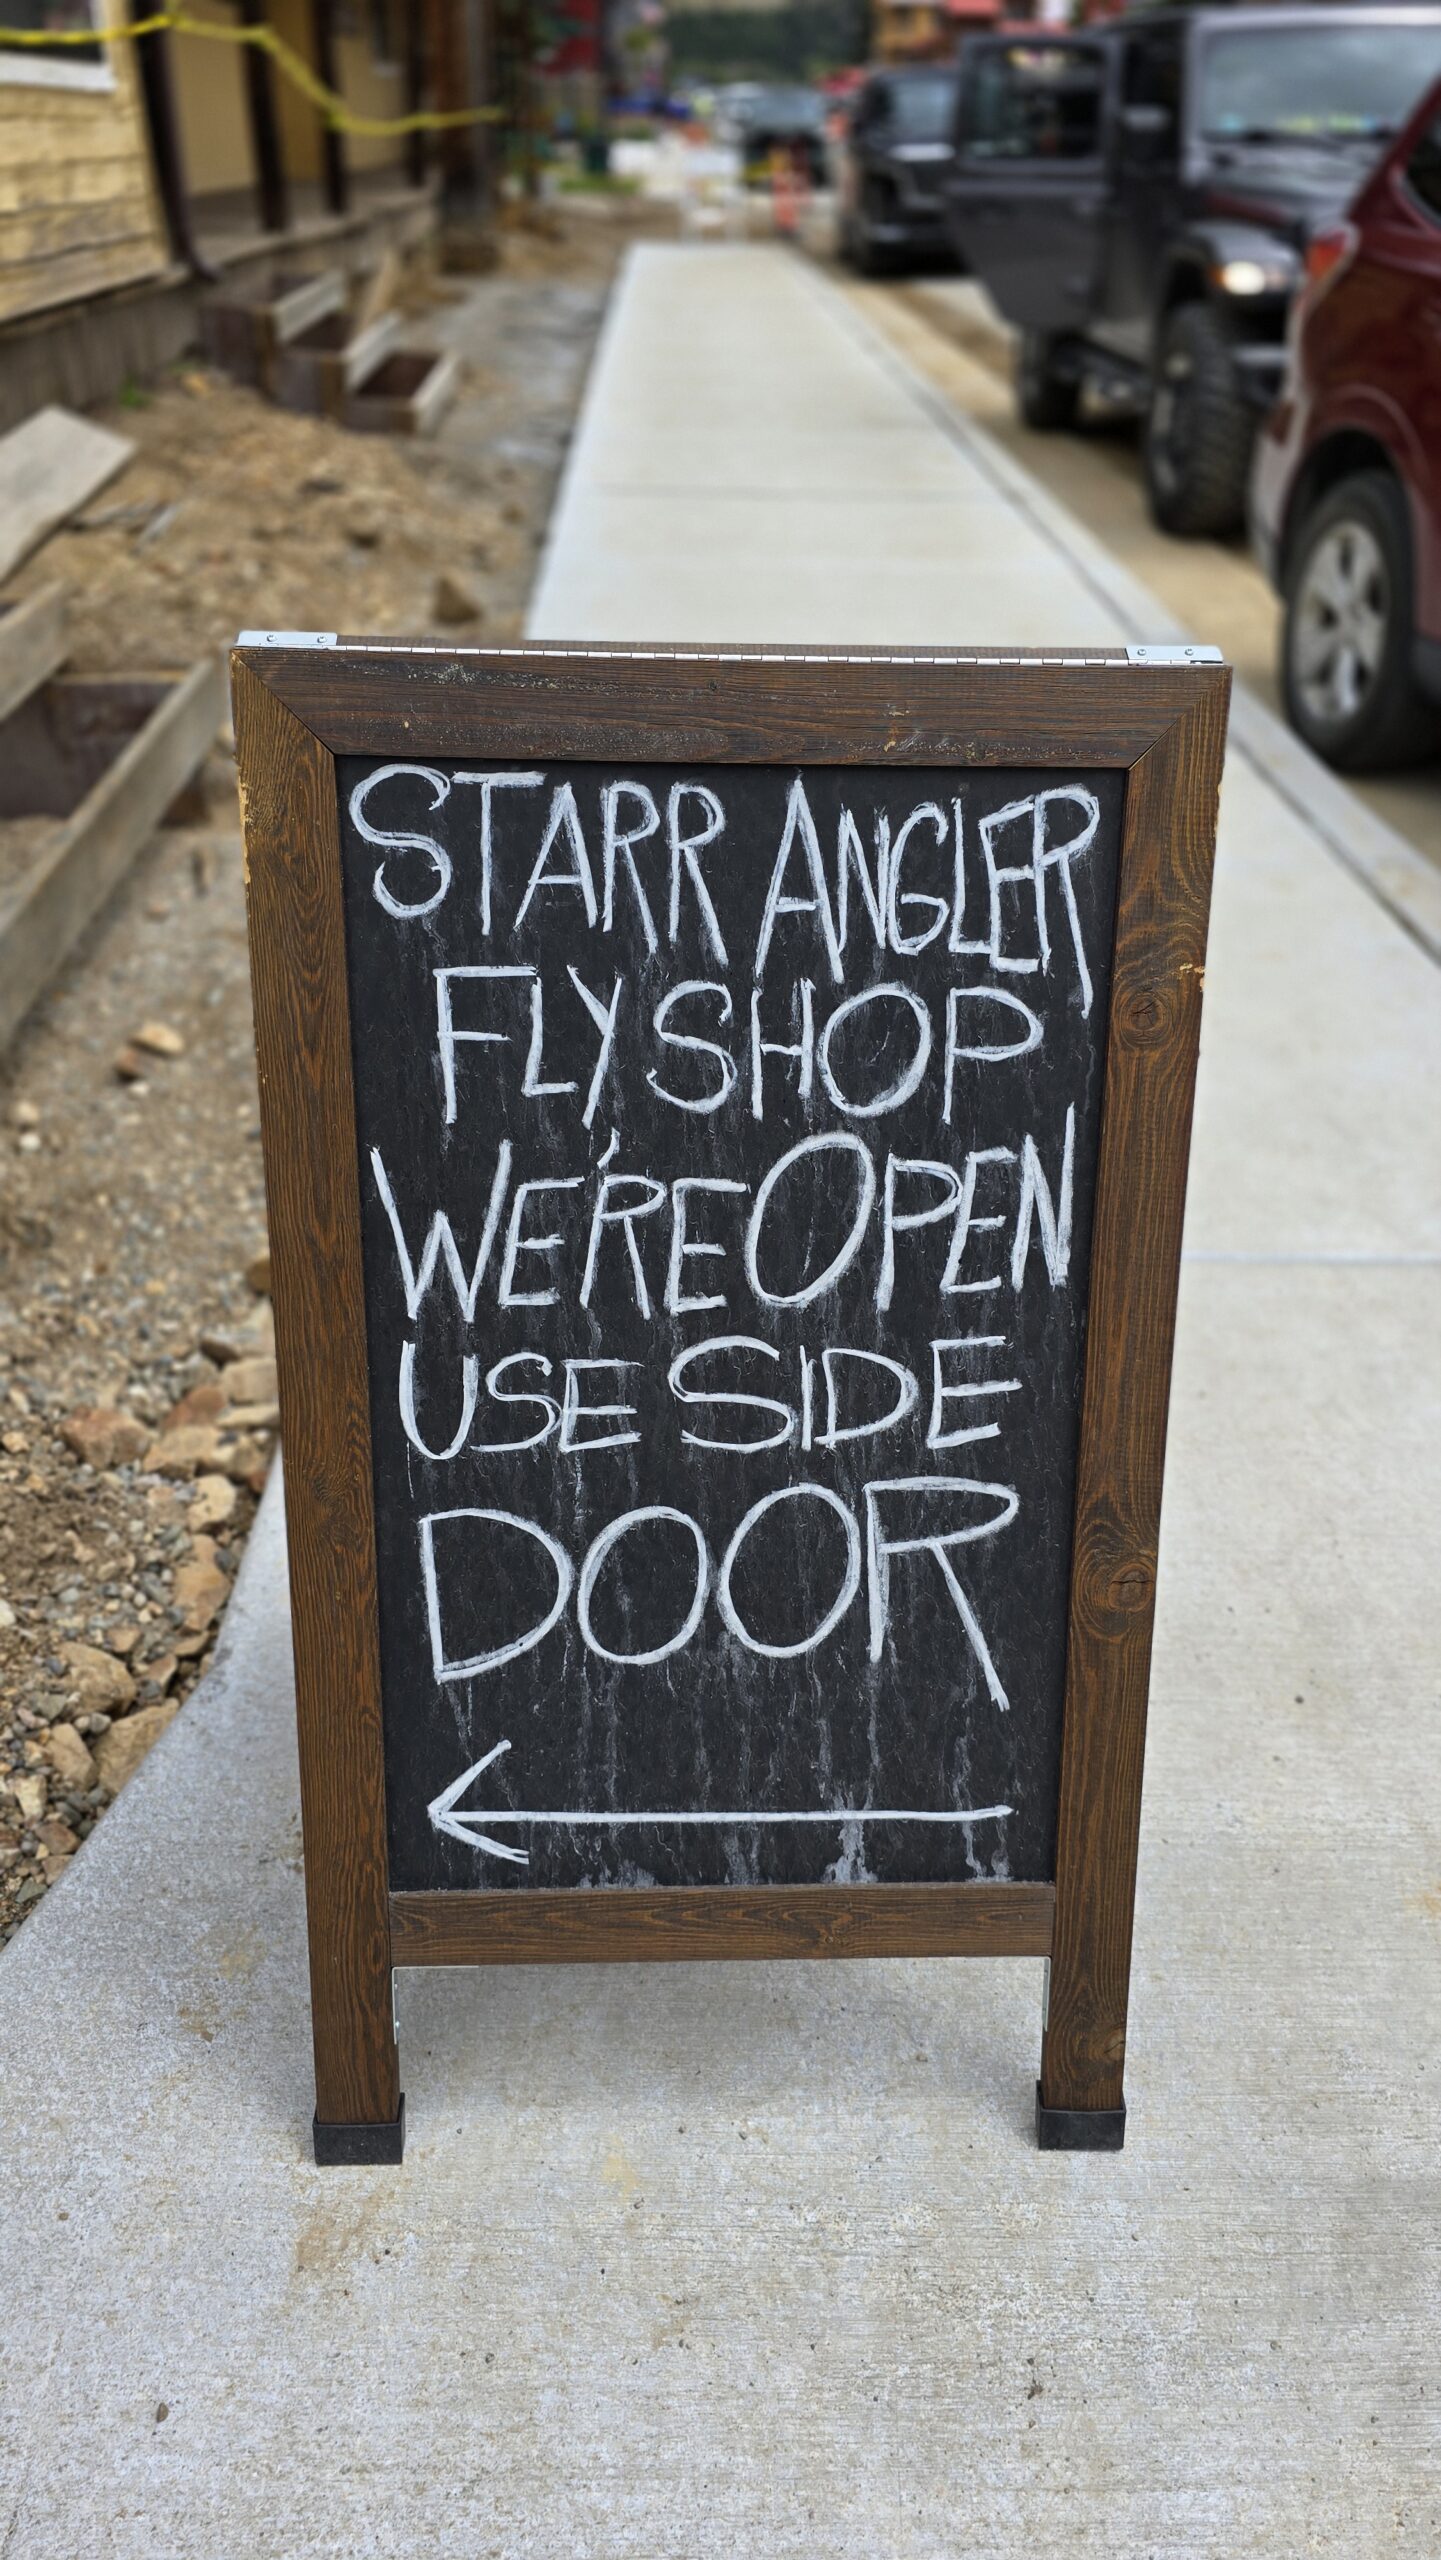 STARR ANGLER
FLY SHOP
WE'RE OPEN
USE SIDE
DOOR